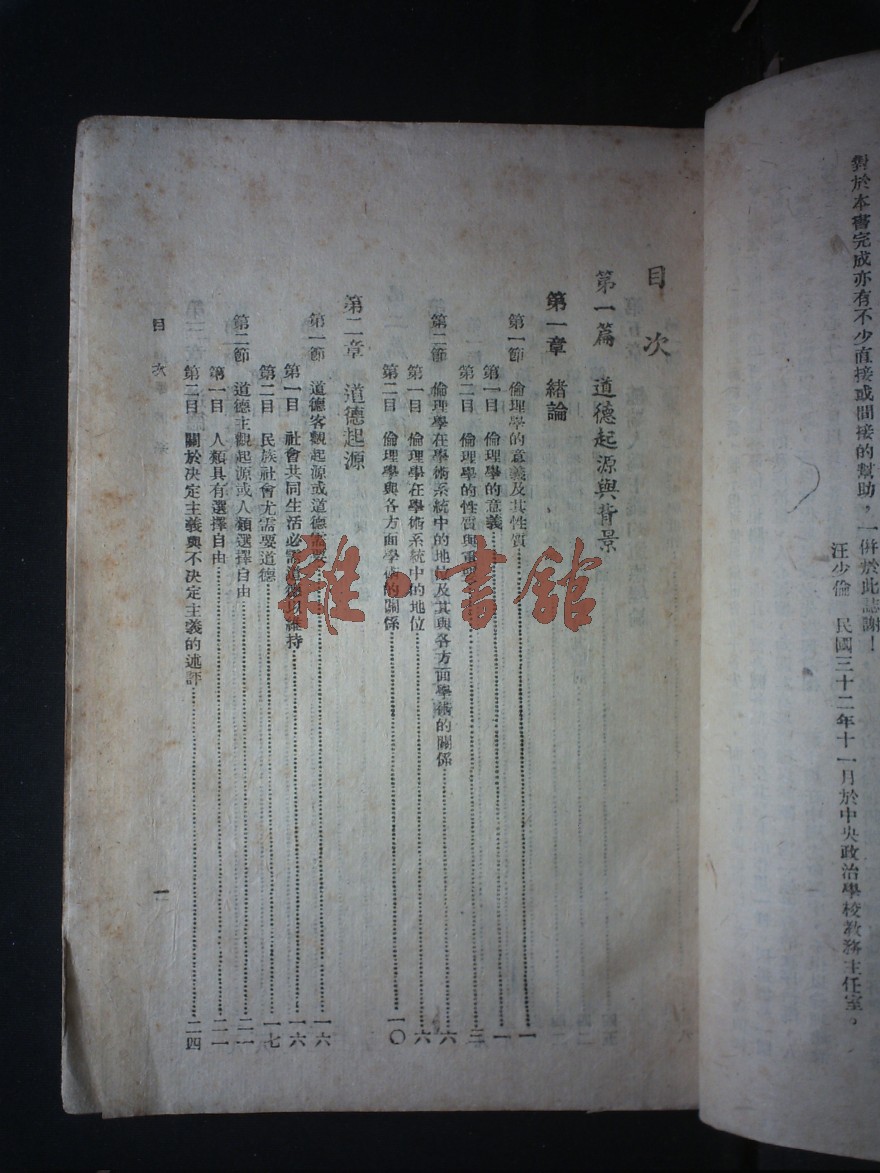 對於本書完成亦有不少直接或間接的幫助，一併於此誌謝！
汪少倫　民國三十二年十一月於中央政治學校教務主任室。
目次
第一篇　道德起源與背景
第一章　緒論
第一節　倫理學的意義及其性質……一
第一目　倫理學的意義……一
第二目　倫理學的性質與……三
第二節　倫理學在學術系統中的地位及其與各方面學術的關係……六
第一目　倫理學在學術系統中的地位……六
第二目　倫理學與各方面學術的關係……一〇
第二章　道德起源
第一節　道德客觀起源或道德需要……一六
第一目　社會共同生活必需道德以維持……一六
第二目　民族社會尤需要道德……一七
第二節　道德主觀起源或人類選擇自由……二一
第一目　人類具有選擇自由……二一
第二目　關於決定主義與不決定主義的述評……二四
目次
一
雜·書館